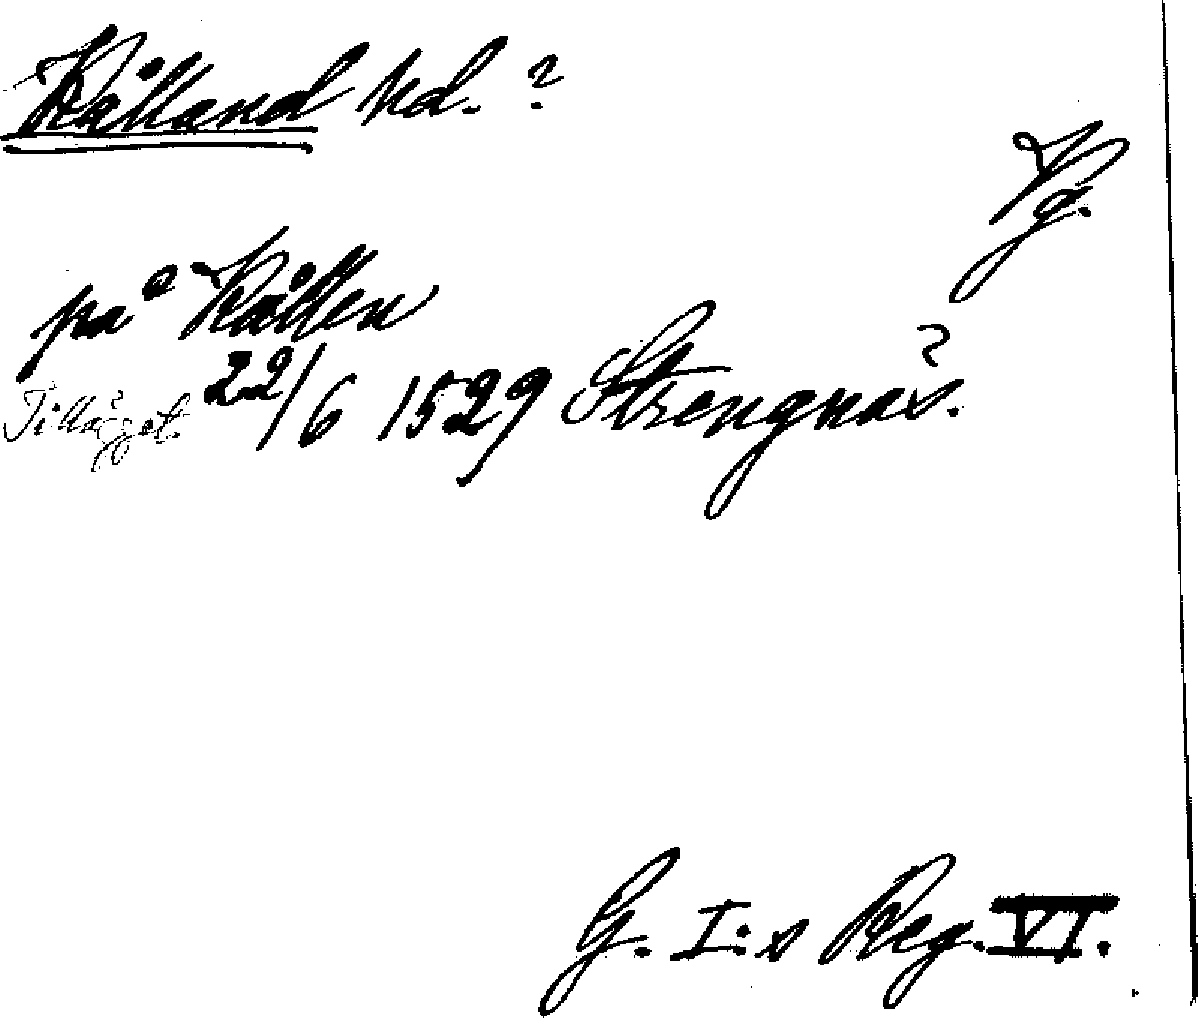 Kålland hd. ?
Vg.
på Kållen
Tillägget. 22/6 1529 Strengnäs.
G. I:s Reg. VI.